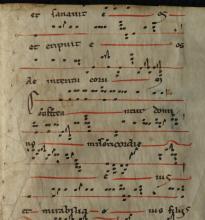 et sanavit e os
et eripuit e os
de interitu eorum
Confitea ntur domi
no misericordie
e ius
et mirabilia e ius filiis